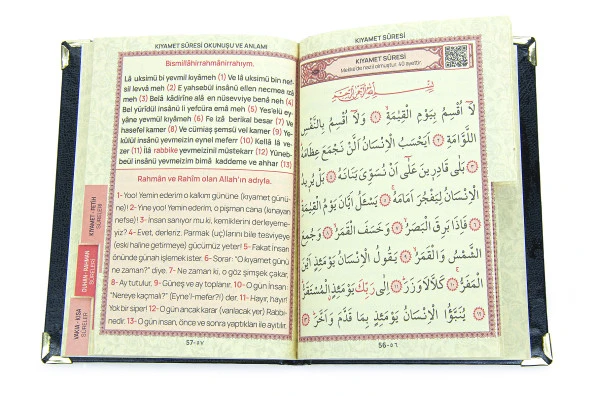 KIYAMET SÛRESİ OKUNUŞU VE ANLAMI
Bismillâhirrahmânirrahıym.
Lâ uksimü bi yevmil kıyâmeh (1) Ve lâ uksimü bin nef-
sil levvâ meh (2) E yahsebül insânü ellen necmea izâ
meh (3) Belâ kâdirîne alâ en nüsevviye benâ neh (4)
Bel yürîdül insânü li yefcüra emâ meh (5) Yes'elü ey-
yâne yevmül kıyâmeh (6) Fe izâ berikal besar (7) Ve
hasefel kamer (8) Ve cümiaş şemsü vel kamer (9) Ye-
kûlül insânü yevmeizin eynel meferr (10) Kellâ lâ ve-
zer (11) İlâ rabbike yevmeizinil müstekarr (12) Yüneb-
beül insânü yevmeizim bimâ kaddeme ve ahhar (13)
Rahmân ve Rahîm olan Allah'ın adıyla.
1- Yoo! Yemin ederim o kalkım gününe (kıyamet günü-
ne)! 2- Yine yoo! Yemin ederim, o pişman cana (kınayan
nefse)! 3- İnsan sanıyor mu ki, kemiklerini derleyeme-
yiz? 4- Evet, derleriz. Parmak (uç)larını bile tesviyeye
(eski haline getimeye) gücümüz yeter! 5- Fakat insan
önünde günah işlemek ister. 6- Sorar: "O kıyamet günü
ne zaman?" diye. 7- Ne zaman ki, o göz şimşek çakar,
8- Ay tutulur. 9- Güneş ve ay toplanır. 10- O gün insan:
"Nereye kaçmalı?" (Eyne'l-mefer?!) der. 11- Hayır, hayır!
Yok bir siper! 12- O gün ancak karar (varılacak yer) Rabbi-
nedir. 13- O gün insan, önce ve sonra yaptıkları ile ayıtılır.
57-٥٧
KIYAMET - FETİH
SÛRELERİ
DUHAN - RAHMAN
SÛRELERİ
VAKIA - KISA
SÛRELER
KIYAMET SÛRESİ
KIYAMET SÛRESİ
Mekke'de nazil olmuştur. 40 ayettir.
بِسْمِ اللّٰهِ الرَّحْمٰنِ الرَّحِيمِ
لَٓا اُقْسِمُ بِيَوْمِ الْقِيٰمَةِ ﴿١﴾ وَلَٓا اُقْسِمُ بِالنَّفْسِ
اللَّوَّامَةِ ﴿٢﴾ اَيَحْسَبُ الْاِنْسَانُ اَلَّنْ نَجْمَعَ عِظَامَهُ
﴿٣﴾ بَلٰى قَادِرِينَ عَلٰٓى اَنْ نُسَوِّيَ بَنَانَهُ ﴿٤﴾ بَلْ يُرِيدُ
الْاِنْسَانُ لِيَفْجُرَ اَمَامَهُ ﴿٥﴾ يَسْـَٔلُ اَيَّانَ يَوْمُ الْقِيٰمَةِ
﴿٦﴾ فَاِذَا بَرِقَ الْبَصَرُ ﴿٧﴾ وَخَسَفَ الْقَمَرُ ﴿٨﴾ وَجُمِعَ
الشَّمْسُ وَالْقَمَرُ ﴿٩﴾ يَقُولُ الْاِنْسَانُ يَوْمَئِذٍ اَيْنَ
الْمَفَرُّ ﴿١٠﴾ كَلَّا لَا وَزَرَ ﴿١١﴾ اِلٰى رَبِّكَ يَوْمَئِذٍ الْمُسْتَقَرُّ
﴿١٢﴾ يُنَبَّؤُا الْاِنْسَانُ يَوْمَئِذٍ بِمَا قَدَّمَ وَاَخَّرَ ﴿١٣﴾
56-٥٦